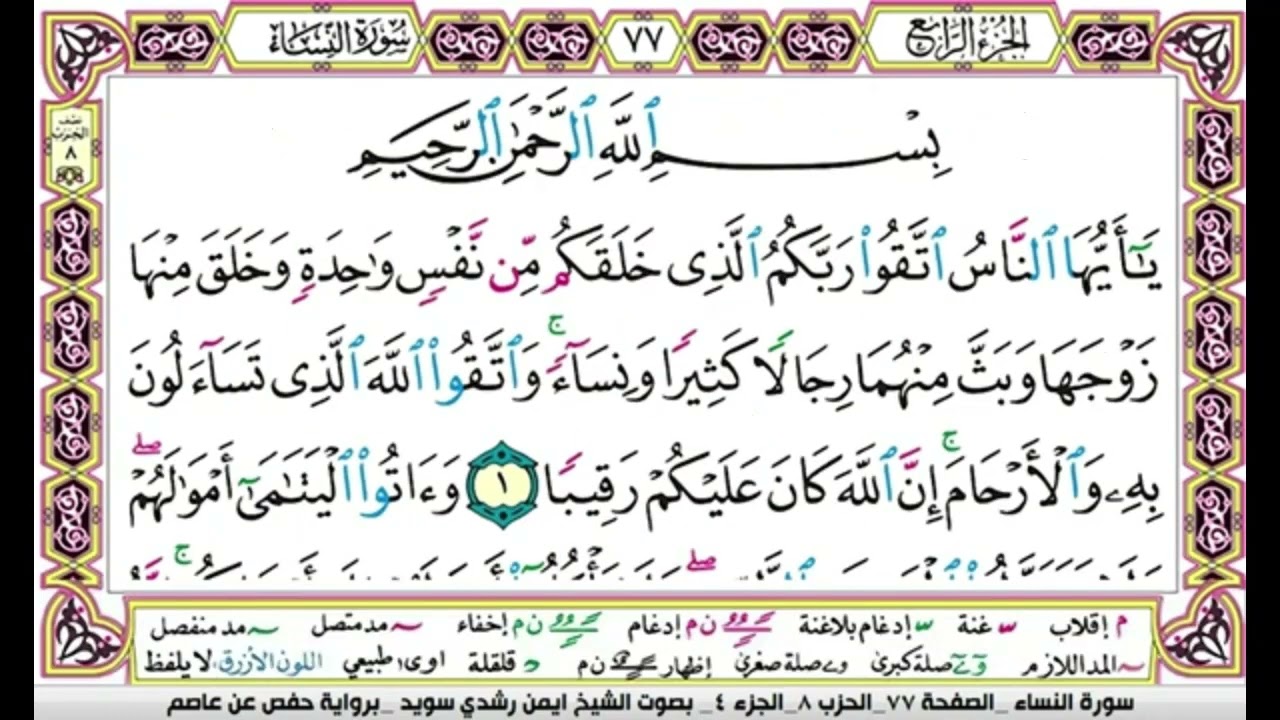 الجزء الرابع ٧٧ سورة النساء
نصف
الحزب
٨
بِسْمِ ٱللَّهِ ٱلرَّحْمَٰنِ ٱلرَّحِيمِ
يَٰٓأَيُّهَا ٱلنَّاسُ ٱتَّقُوا۟ رَبَّكُمُ ٱلَّذِى خَلَقَكُم مِّن نَّفْسٍ وَٰحِدَةٍ وَخَلَقَ مِنْهَا
زَوْجَهَا وَبَثَّ مِنْهُمَا رِجَالًا كَثِيرًا وَنِسَآءً ۚ وَٱتَّقُوا۟ ٱللَّهَ ٱلَّذِى تَسَآءَلُونَ
بِهِۦ وَٱلْأَرْحَامَ ۚ إِنَّ ٱللَّهَ كَانَ عَلَيْكُمْ رَقِيبًا ١ وَءَاتُوا۟ ٱلْيَتَٰمَىٰٓ أَمْوَٰلَهُمْ ۖ
م إقلاب غنة إدغام بلاغنة ن م إدغام ن م إخفاء مد متصل مد منفصل
المد اللازم صلة كبرى صلة صغرى إظهار ن م اوى طبيعي قلقلة اللون الأزرق لا يلفظ
سورة النساء _الصفحة ٧٧_الحزب ٨_الجزء ٤_ بصوت الشيخ ايمن رشدي سويد _برواية حفص عن عاصم